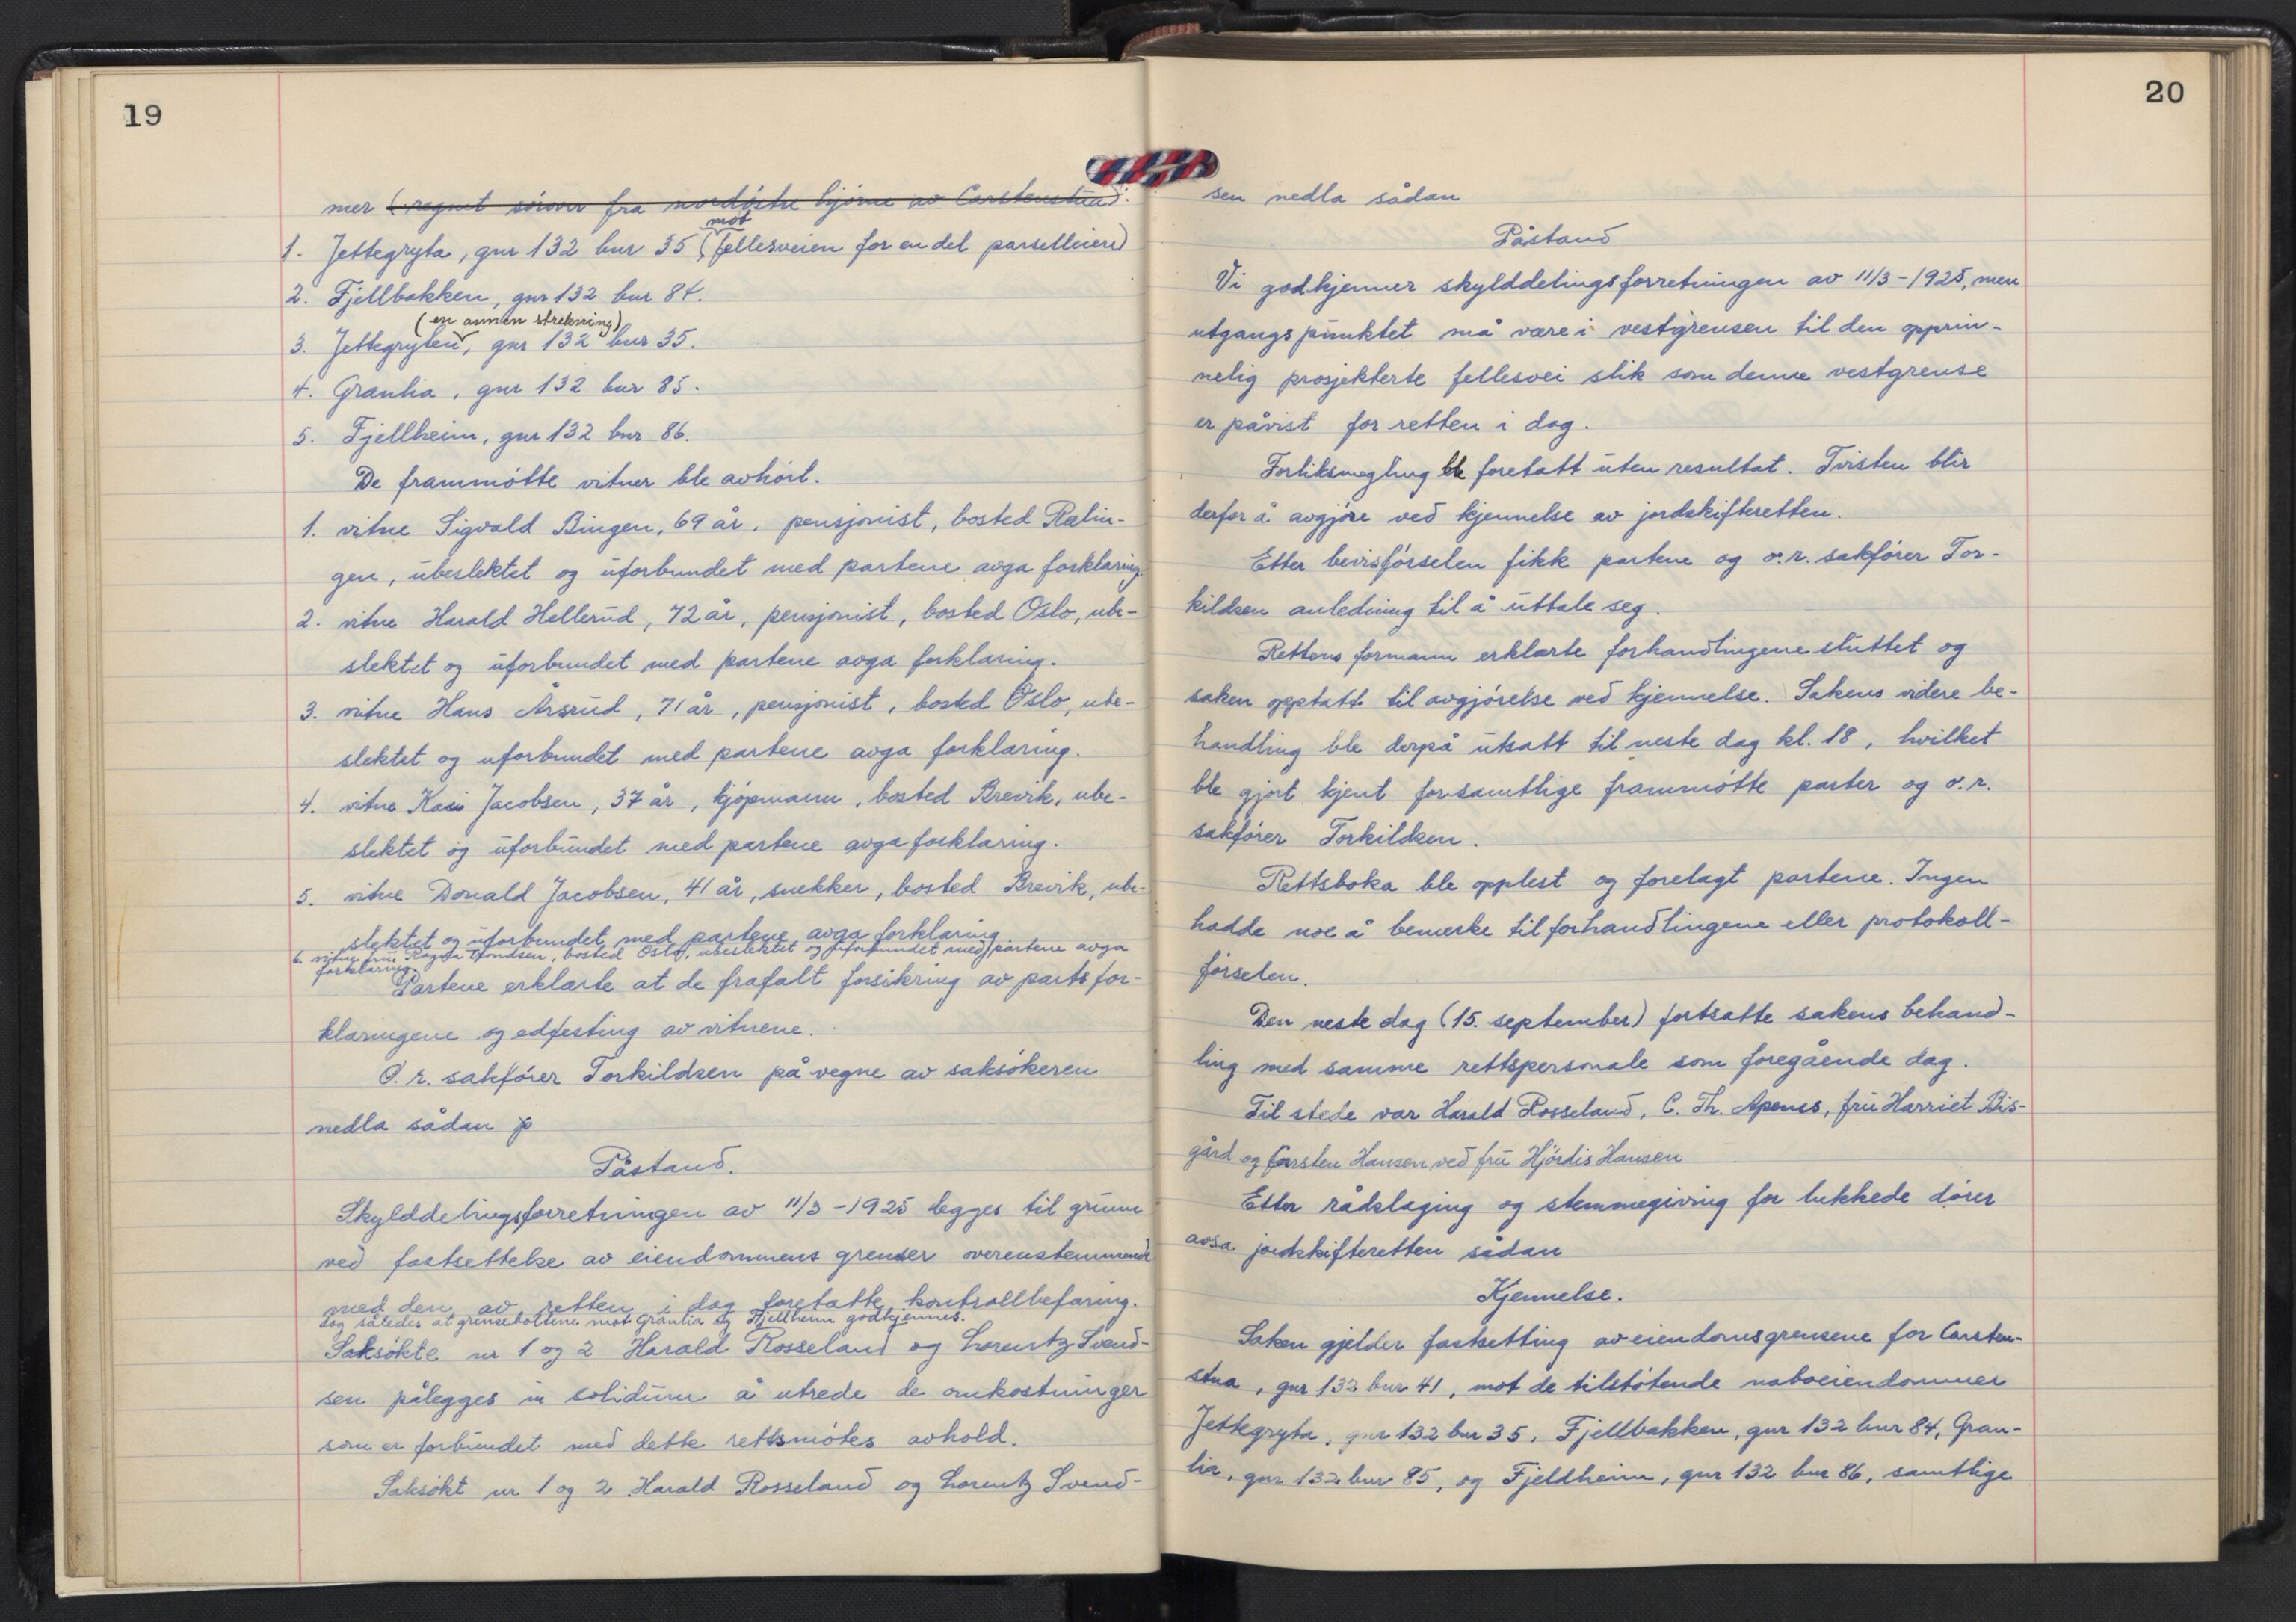 19
mer (regnet sørover fra nordøstre hjørne av Carstenstua):
1. Jettegryta, gnr 132 bnr 35 (mot fellesveien for en del parselleiere)
2. Fjellbakken, gnr 132 bnr 84.
(en annen strekning)
3. Jettegryten, gnr 132 bnr 35.
4. Granlia, gnr 132 bnr 85.
5. Fjellheim, gnr 132 bnr 86.
De frammøtte vitner ble avhørt.
1. vitne Sigvald Bingen, 69 år, pensjonist, bosted Rælin-
gen, ubeslektet og uforbundet med partene avga forklaring.
2. vitne Harald Hellerud, 72 år, pensjonist, bosted Oslo, ube-
slektet og uforbundet med partene avga forklaring.
3. vitne Hans Årsrud, 71 år, pensjonist, bosted Oslo, ube-
slektet og uforbundet med partene avga forklaring.
4. vitne Kai Jacobsen, 37 år, kjøpmann, bosted Brevik, ube-
slektet og uforbundet med partene avga forklaring.
5. vitne Donald Jacobsen, 41 år, snekker, bosted Brevik, ube-
slektet og uforbundet med partene avga forklaring.
6. vitne fru Ragna bosted Oslo, ubeslektet og uforbundet med partene avga
forklaring.
Partene erklærte at de frafalt forsikring av partsfor-
klaringene og edfesting av vitnene.
O.r. sakfører Torkildsen på vegne av saksøkeren
nedla sådan p
Påstand.
Skylddelingsforretningen av 11/3-1925 legges til grunn
ved fastsettelse av eiendommens grenser overenstemmende
med den av retten i dag foretatte kontrollbefaring.
dog således at grenseboltene mot Granlia og Fjellheim godkjennes.
Saksøkte nr 1 og 2 Harald Rosseland og Lorentz Svend-
sen pålegges in solidum å utrede de omkostninger
som er forbundet med dette rettsmøtes avhold.
Saksøkt nr 1 og 2 Harald Rosseland og Lorentz Svend-
20
sen nedla sådan
Påstand
Vi godkjenner skylddelingsforretningen av 11/3-1925, men
utgangspunktet må være i vestgrensen til den opprin-
nelig prosjekterte fellesvei slik som denne vestgrense
er påvist for retten i dag.
Forliksmegling ble foretatt uten resultat. Tvisten blir
derfor å avgjøre ved kjennelse av jordskifteretten.
Etter bevisførselen fikk partene og o.r. sakfører Tor-
kildsen anledning til å uttale seg.
Rettens formann erklærte forhandlingene sluttet og
saken opptatt til avgjørelse ved kjennelse. Sakens videre be-
handling ble derpå utsatt til neste dag kl. 18, hvilket
ble gjort kjent for samtlige frammøtte parter og o.r.
sakfører Torkildsen.
Rettsboka ble opplest og forelagt partene. Ingen
hadde noe å bemerke til forhandlingene eller protokoll-
førselen.
Den neste dag (15. september) fortsatte sakens behand-
ling med samme rettspersonale som foregående dag.
Til stede var Harald Rosseland, C. Th. Apenes, fru Harriet Bis-
gård og Carsten Hansen ved fru Hjördis Hansen
Etter rådslaging og stemmegiving for lukkede dører
avsa jordskifteretten sådan
Kjennelse.
Saken gjelder fastsetting av eiendomsgrensene for Carsten-
stua, gnr 132 bnr 41, mot de tilstøtende naboeiendommer
Jettegryta, gnr 132 bnr 35, Fjellbakken, gnr 132 bnr 84, Gran-
lia, gnr 132 bnr 85, og Fjeldheim, gnr 132 bnr 86, samtlige